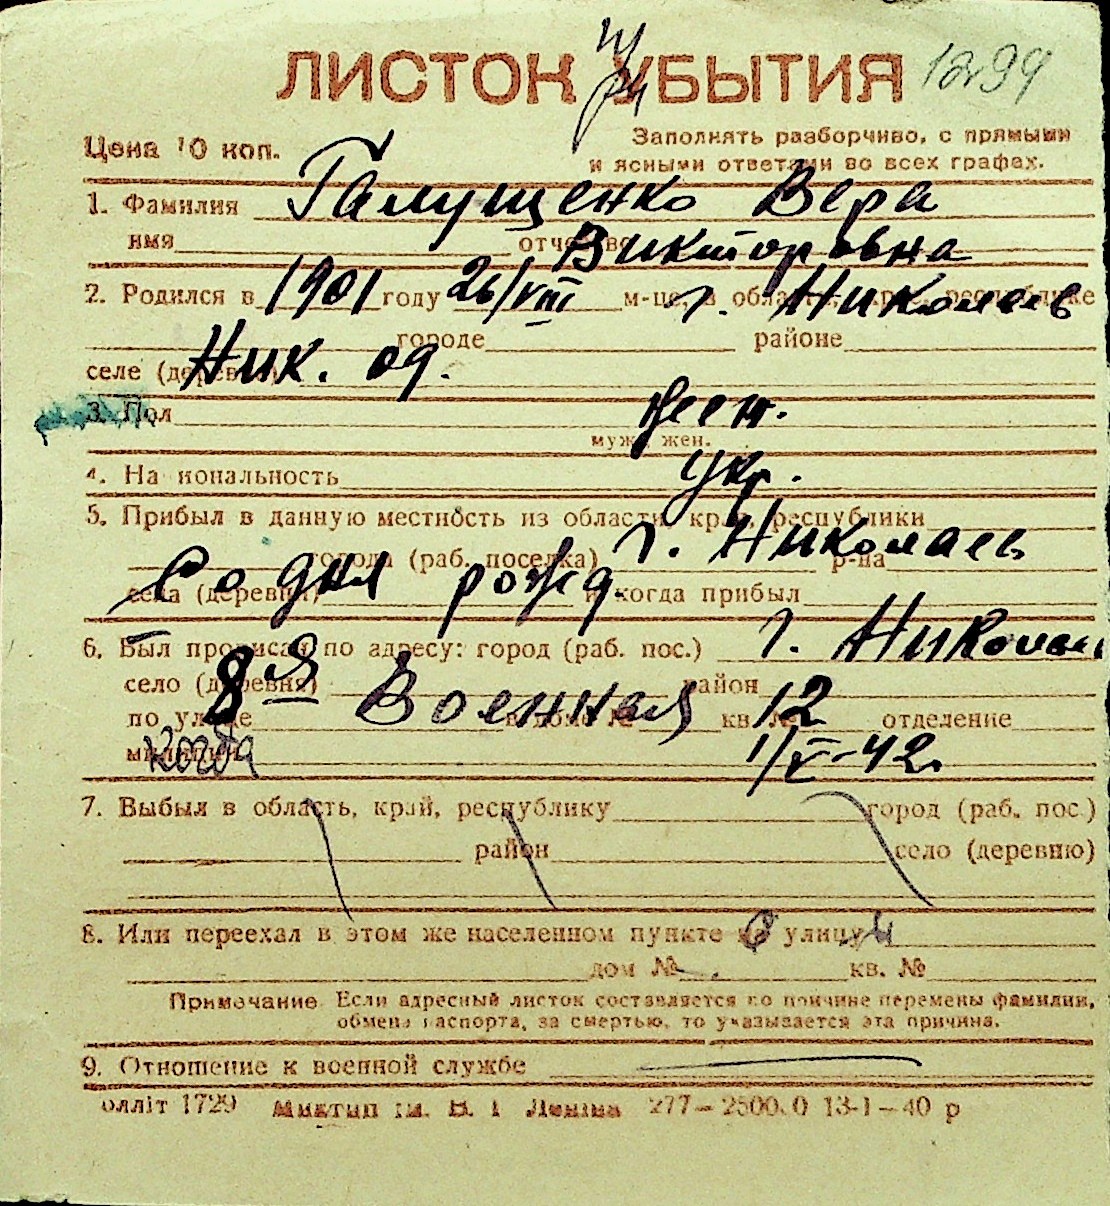 ЛИСТОК УБЫТИЯ 1299
Цена 10 коп. Заполнять разборчиво, с прямыми
и ясными ответами во всех графах.
1. Фамилия Галущенко Вера
имя отчество Викторовна
2. Родился в 1901 году 26/VIII м-це, в области, крае, республике г. Николаев
городе районе
селе (деревне) Ник. од.
3. Пол жен.
муж., жен.
4. Национальность укр.
5. Прибыл в данную местность из области, края, республики
города (раб. поселка) г. Николаев р-на
села (деревни) Со дня рожд. и когда прибыл
6. Был прописан по адресу: город (раб. пос.) г. Николаев
село (деревня) район
по улице 8я Военная в доме № кв. № 12 отделение
милиции когда 1/V-42
7. Выбыл в область, край, республику город (раб. пос.)
район село (деревню)
8. Или переехал в этом же населенном пункте на улицу
дом № кв. №
Примечание. Если адресный листок составляется по причине перемены фамилии,
обмена паспорта, за смертью, то указывается эта причина.
9. Отношение к военной службе
олліт 1729 им. В. І. Леніна 277—2500.0 13-1—40 р